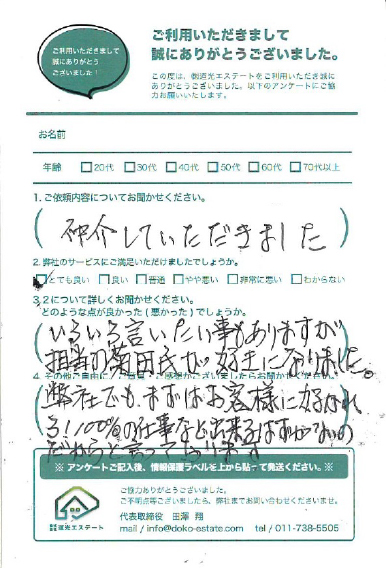 ご利用いただきまして
誠にありがとう
ございました！
ご利用いただきまして
誠にありがとうございました。
この度は、㈱道光エステートをご利用いただき誠に
ありがとうございました。以下のアンケートにご協
力お願いいたします。
お名前
年齢 □20代 □30代 □40代 □50代 □60代 □70代以上
1.ご依頼内容についてお聞かせください。
仲介していただきました
2.弊社のサービスにご満足いただけましたでしょうか。
□とても良い □良い □普通 □やや悪い □非常に悪い □わからない
3.2について詳しくお聞かせください。
どのような点が良かった(悪かった)でしょうか。
いろいろ言いたい事もありますが
担当の菊田氏が好きになりました。
4.その他ご自由にご意見・ご感想がございましたらお聞かせください。
弊社でもまずはお客様に好かれ
ろ！100%の仕事など出来るはずがないの
だからと言っております
※ アンケートご記入後、情報保護ラベルを上から貼って発送ください。※
ご協力ありがとうございました。
ご不明点等ございましたら、弊社までお問い合わせくださいませ。
株式会社 道光エステート
代表取締役 田澤 翔
mail / info@doko-estate.com tel / 011-738-5505